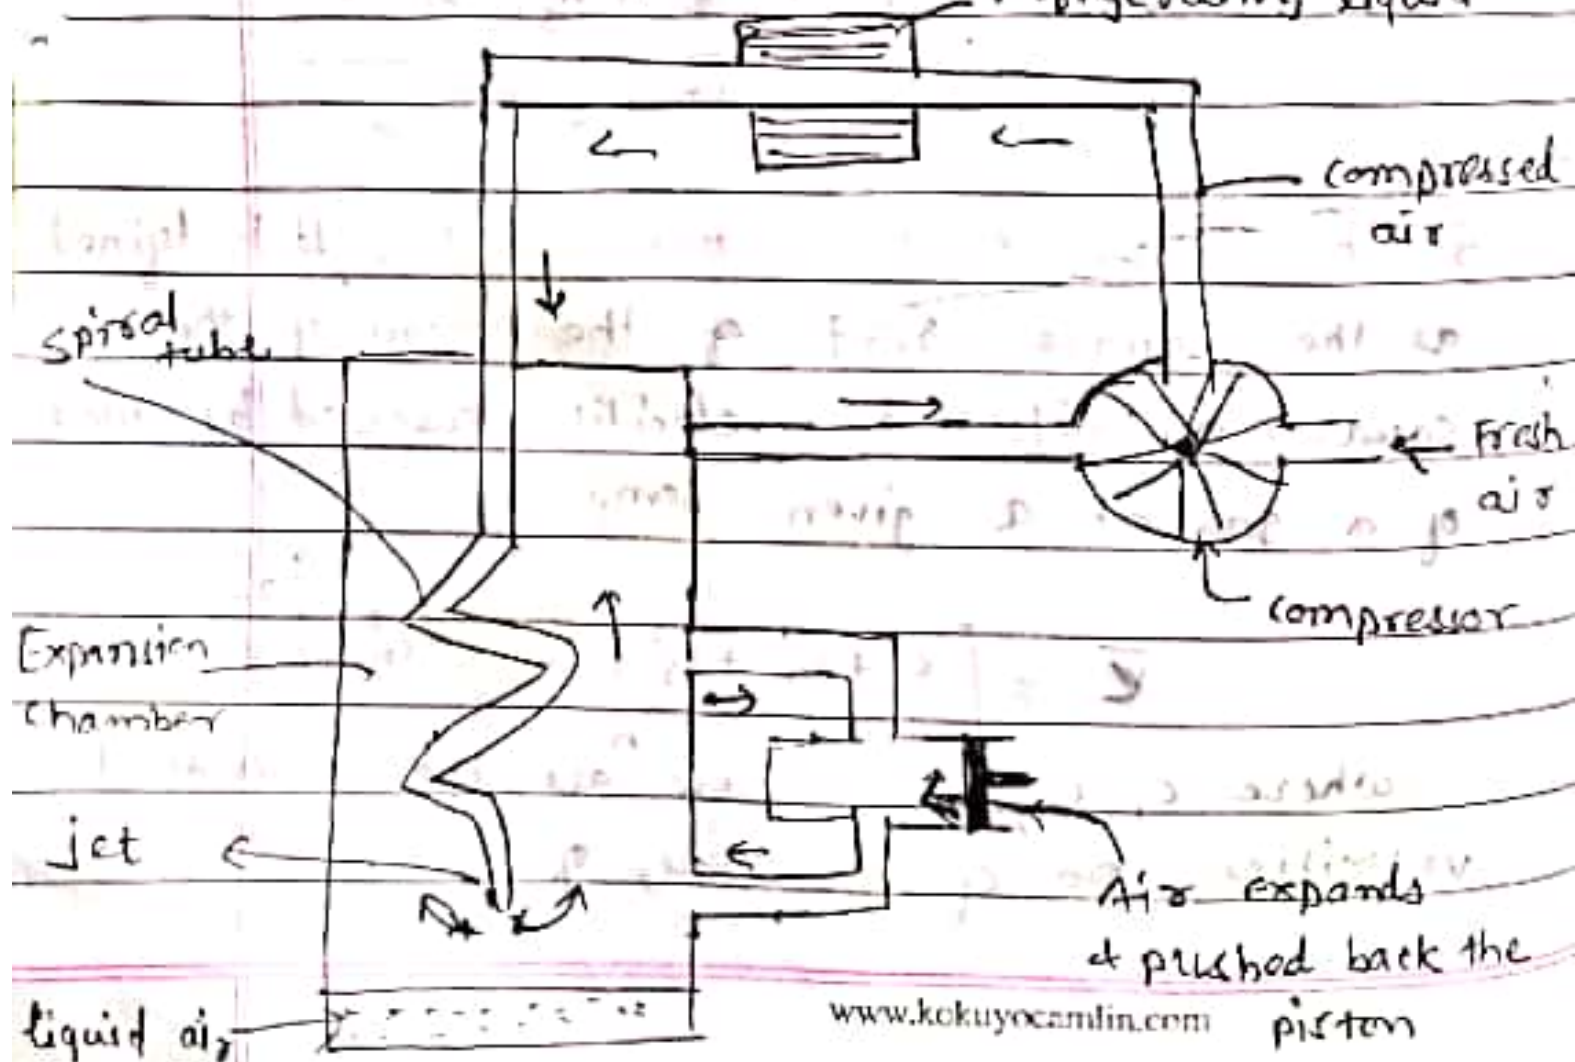 liquid
compressed
air
spiral
tube
Fresh
air
compressor
Expansion
Chamber
jet
Air expands
& pushed back the
piston
liquid air
www.kokuyocamlin.com